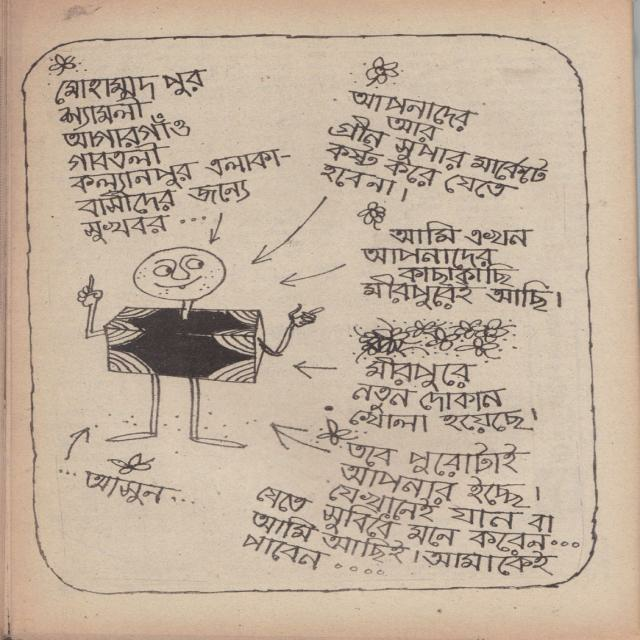 মোহাম্মদ পুর
শ্যামলী
আগারগাঁও
গাবতলী
কল্যানপুর এলাকা-
বাসীদের জন্যে
সুখবর ...
আপনাদের
আর
গ্রীন সুপার মার্কেটে
কষ্ট করে যেতে
হবেনা।
আমি এখন
আপনাদের
কাছাকাছি
মীরপুরেই আছি।
মীরপুরে
নতুন দোকান
খোলা হয়েছে।
তবে পুরোটাই
আপনার ইচ্ছে।
যেখানেই যান বা
যেতে সুবিধে মনে করেন...
আমি আছিই। আমাকেই
পাবেন ....
... আসুন ...